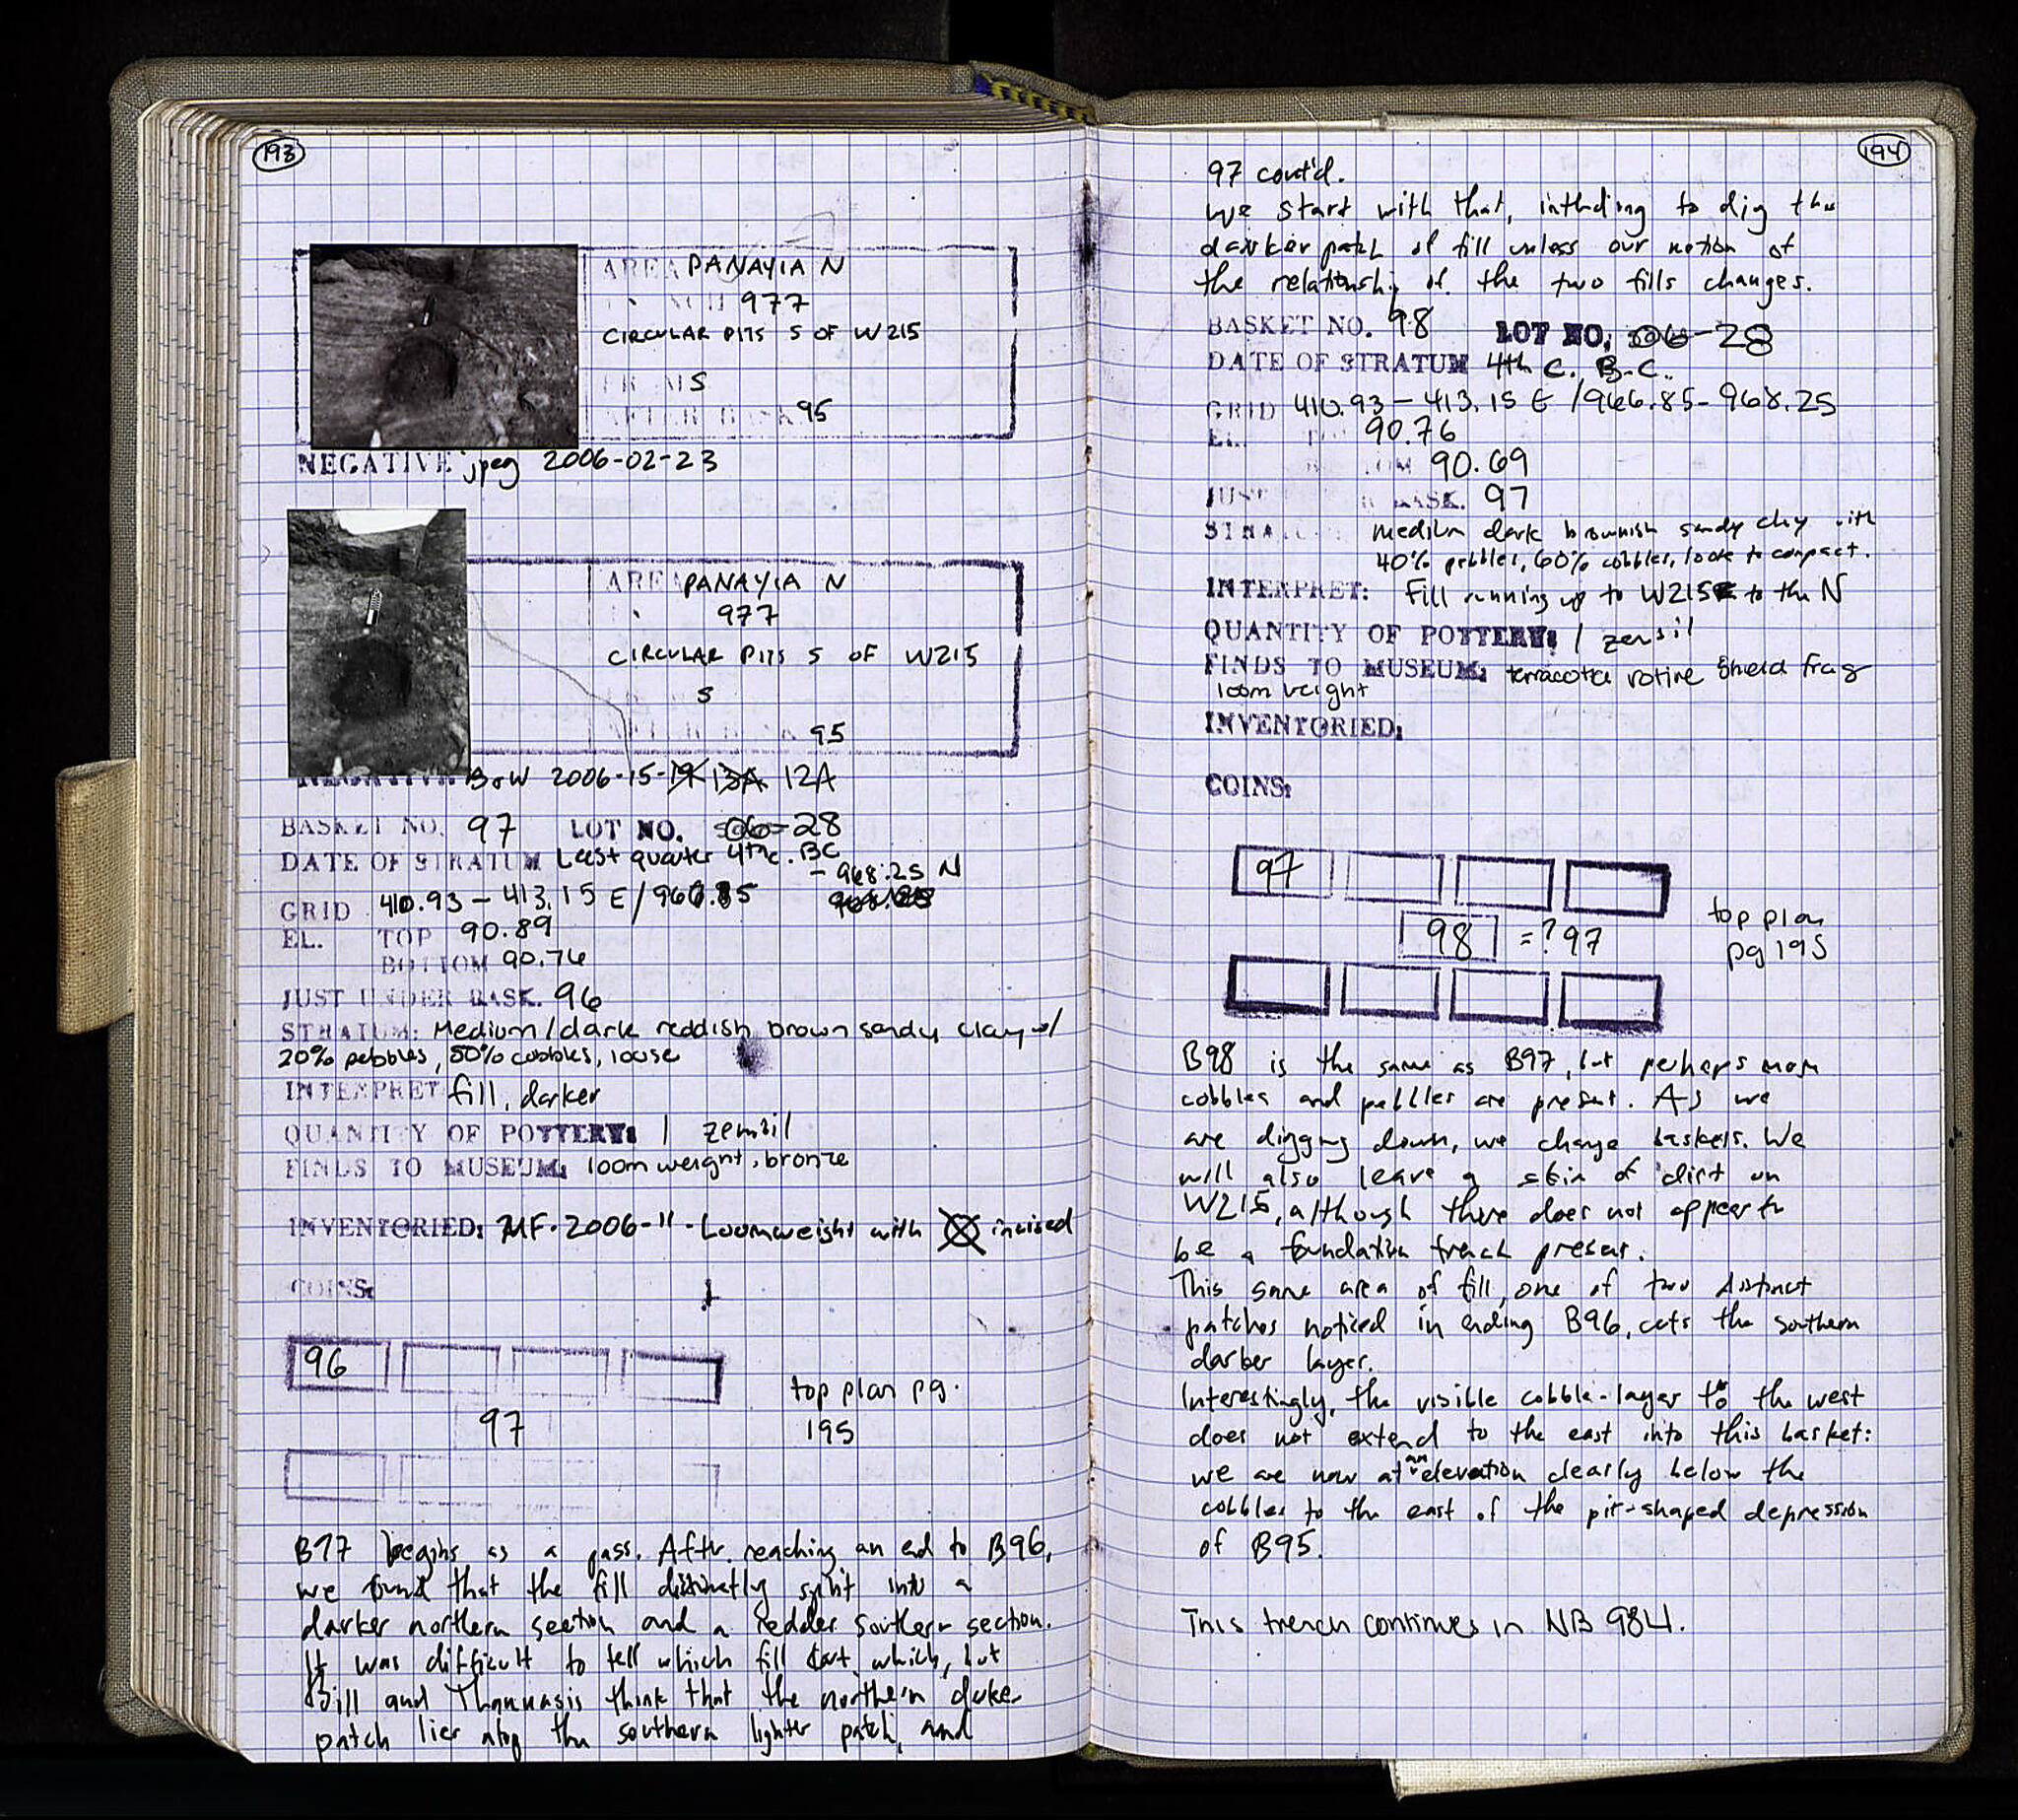 193
AREA PANAYIA N
977
CIRCULAR PITS S OF W215
S
95
NEGATIVE jpeg 2006-02-23
AREA PANAYIA N
977
CIRCULAR PITS S OF W215
S
AFTER BASK 95
NEGATIVE B+W 2006-15-14 13A 12A
BASKET NO. 97 LOT NO. 06-28
DATE OF STRATUM Last quarter 4th c. BC
- 968.25 N
GRID 410.93 - 413.15 E / 966.85
EL. TOP 90.89
BOTTOM 90.76
JUST UNDER BASK. 96
STRATUM: Medium/dark reddish brown sandy clay w/
20% pebbles, 50% cobbles, loose
INTERPRET fill, darker
QUANTITY OF POTTERY: 1 zembil
FINDS TO MUSEUM: loomweight, bronze
INVENTORIED: MF-2006-11 - Loomweight with incised
COINS: 1
96
97
top plan pg.
195
B97 begins as a pass. After reaching an end to B96,
we found that the fill distinctly split into a
darker northern section and a redder southern section.
It was difficult to tell which fill cut which, but
Bill and Thannasis think that the northern darker
patch lies atop the southern lighter patch, and
194
97 cont'd.
we start with that, intending to dig the
darker patch of fill unless our notion of
the relationship of the two fills changes.
BASKET NO. 98 LOT NO. 06-28
DATE OF STRATUM 4th C. B.C.
GRID 410.93 - 413.15 E / 966.85 - 968.25
EL. 90.76
90.69
JUST BASK. 97
medium dark brownish sandy clay with
40% pebbles, 60% cobbles, loose to compact.
INTERPRET: Fill running up to W215 to the N
QUANTITY OF POTTERY: 1 zembil
FINDS TO MUSEUM: terracotta votive shield frag
loom weight
INVENTORIED:
COINS:
97
98 =? 97
top plan
pg 195
B98 is the same as B97, but perhaps more
cobbles and pebbles are present. As we
are digging down, we change baskets. We
will also leave a skin of dirt on
W215, although there does not appear to
be a foundation trench present.
This same area of fill, one of two distinct
patches noticed in ending B96, cuts the southern
darker layer.
Interestingly, the visible cobble-layer to the west
does not extend to the east into this basket:
we are now at an elevation clearly below the
cobbles to the east of the pit-shaped depression
of B95.
This trench continues in NB 984.